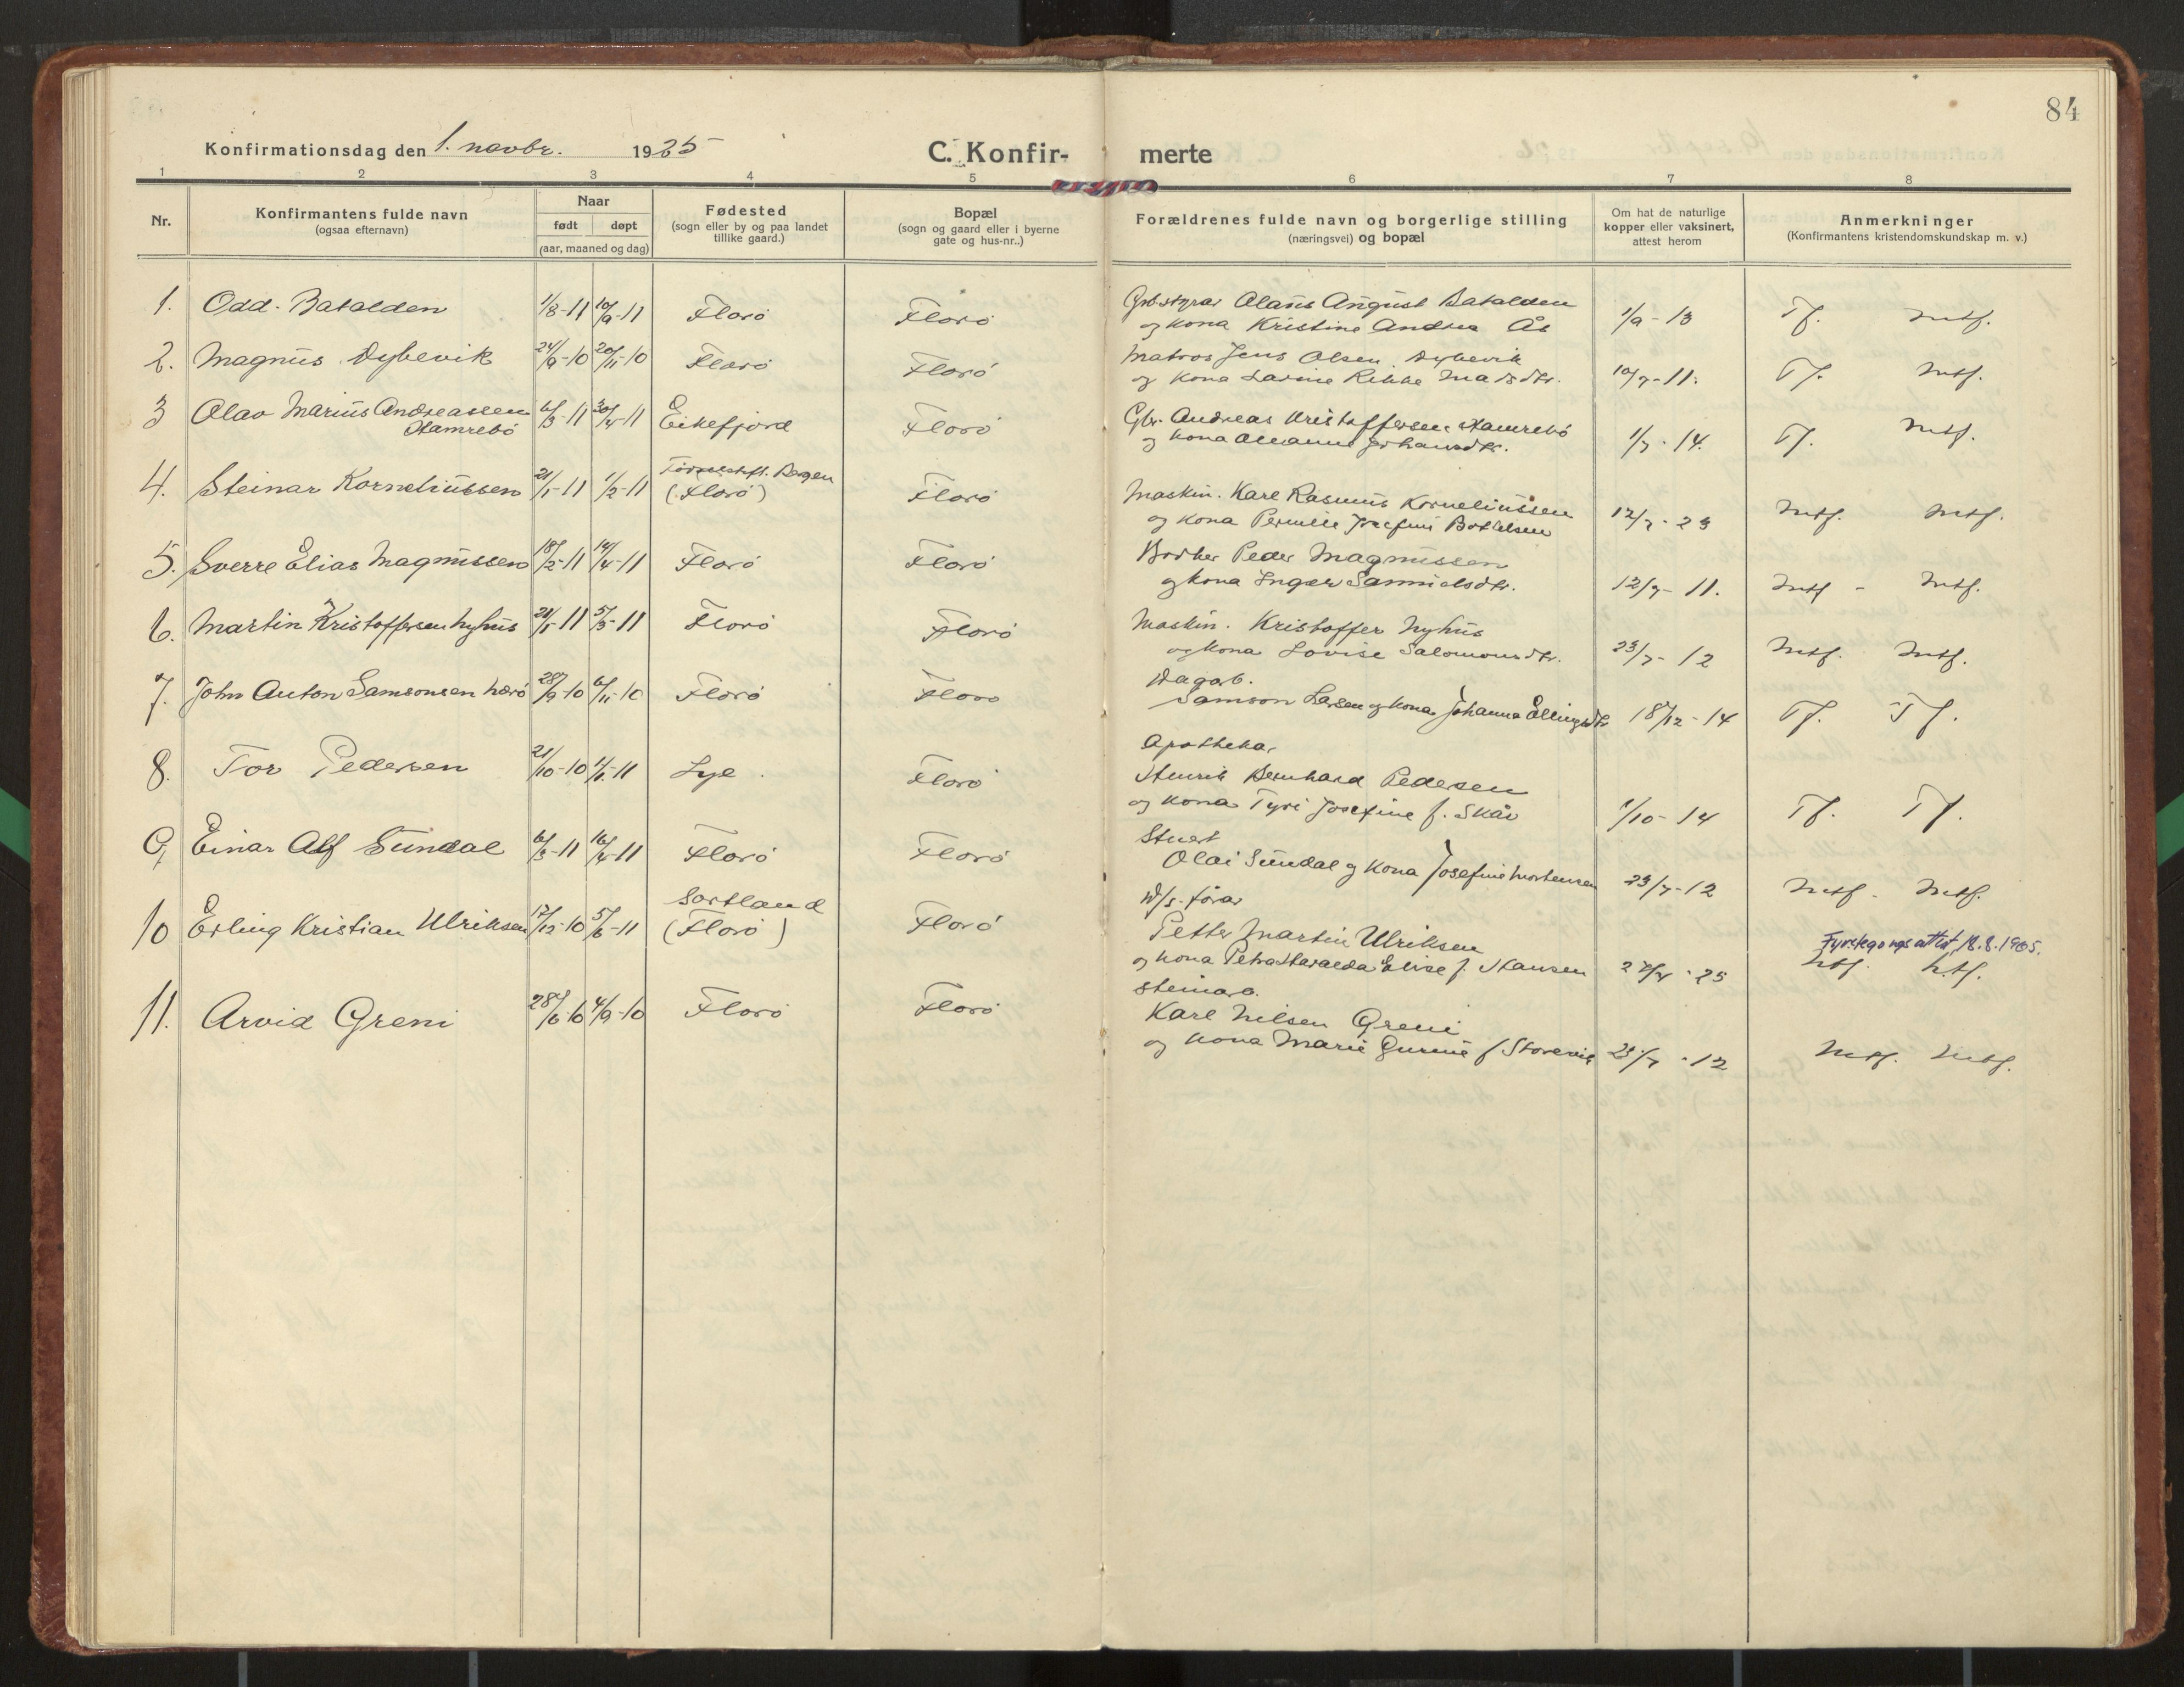 84
Konfirmationsdag den 1. novbr. 1925
C. Konfir- merte
1 2 3 4 5 6 7 8
Nr.
Konfirmantens fulde navn
(ogsaa efternavn)
Naar
født døpt
(aar, maaned og dag)
Fødested
(sogn eller by og paa landet
tillike gaard.)
Bopæl
(sogn og gaard eller i byerne
gate og hus-nr..)
Forældrenes fulde navn og borgerlige stilling
(næringsvei) og bopæl
Om hat de naturlige
kopper eller vaksinert,
attest herom
Anmerkninger
(Konfirmantens kristendomskundskap m. v.)
1. Odd Batalden 1/8-11 10/9-11 Florö Florö
Olaus August Batalden
og kona Kristine Andrea Ås 1/9-13 Tf. Mtf.
2. Magnus Dybevik 24/9-10 20/11-10 Florö Florö
Matros Jens Olsen Dybevik
og kona Larine Rikke Madsdtr. 10/7-11. Tf. Mtf.
3 Olav Marius Andreassen
Hamrebö 6/3-11 30/4-11 Eikefjord Florö
Gbr. Andreas Kristoffersen Hamrebö
og kona Johansdtr. 1/7-14. Tf. Mtf.
4. Steinar Korneliussen 21/1-11 1/2-11 Bergen
(Florö) Florö
Maskin. Karl Rasmus Korneliussen
og kona Pernille Josefine Bottelsen 12/7-23 Mtf. Mtf.
5. Sverre Elias Magnussen 18/2-11 14/4-11 Florö Florö
Peder Magnussen
og kona Inger Samuelsdtr. 12/7-11. Mtf - Mtf.
6. Martin Kristoffersen Nyhus 21/1-11 5/3-11 Florö Florö
Maskin. Kristoffer Nyhus
og kona Lovise Salomonsdtr. 23/7-12 Mtf. Mtf.
7. John Anton Samsonsen 28/9-10 6/11-10 Florö Florö
Dagarb.
Samson Larsen og kona Johanna Ellingsdtr 18/12-14 Tf. Tf.
8. Tor Pedersen 21/10-10 1/1-11 Lye. Florö
Apothekar
Henrik Bernhard Pedersen
og kona Tyri Josefine f. Skår 1/10-14 Tf. Tf.
9, Einar Alf Sundal 6/3-11 16/4-11 Florö Florö
Stuert
Olai Sundal og kona Josefine Mortensen 23/7-12 Mtf. Mtf.
10 Erling Kristian Ulriksen 17/12-10 5/6-11 Sortland
(Florö) Florö
D/s. förar
Petter Martin Ulriksen
og kona Petra Haralda Elise f. Hansen 27/4-25 Mtf. Mtf.
Fyrstegongsattest 18.8.1965.
11. Arvid Greni 28/6-10 4/9-10 Florö Florö
Steinarb.
Karl Nilsen Greni
og kona Marie Gurine f Storevik 23/7-12 Mtf. Mtf.